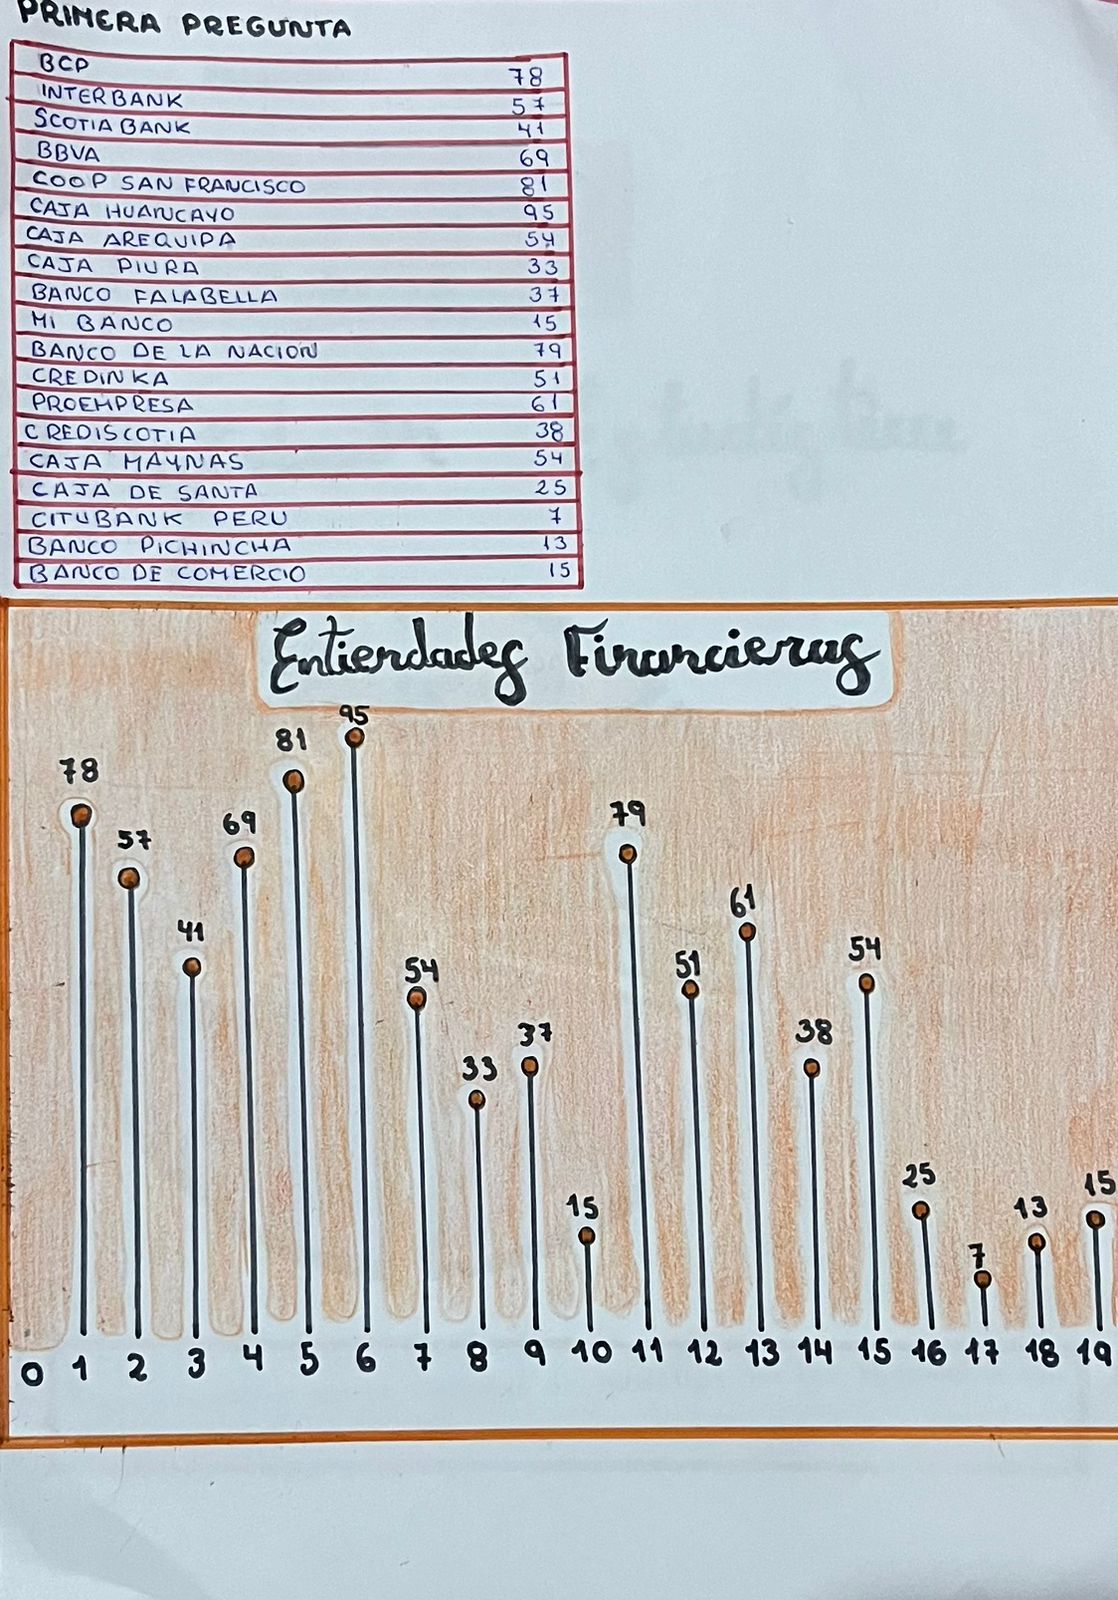 PRIMERA PREGUNTA
BCP 78
INTERBANK 57
SCOTIA BANK 41
BBVA 69
COOP SAN FRANCISCO 81
CAJA HUANCAYO 95
CAJA AREQUIPA 54
CAJA PIURA 33
BANCO FALABELLA 37
MI BANCO 15
BANCO DE LA NACION 79
CREDINKA 51
PROEMPRESA 61
CREDISCOTIA 38
CAJA MAYNAS 54
CAJA DE SANTA 25
CITUBANK PERU 7
BANCO PICHINCHA 13
BANCO DE COMERCIO 15
Entiendades Financieras
78 57 41 69 81 95 54 33 37 15 79 51 61 38 54 25 7 13 15
0 1 2 3 4 5 6 7 8 9 10 11 12 13 14 15 16 17 18 19